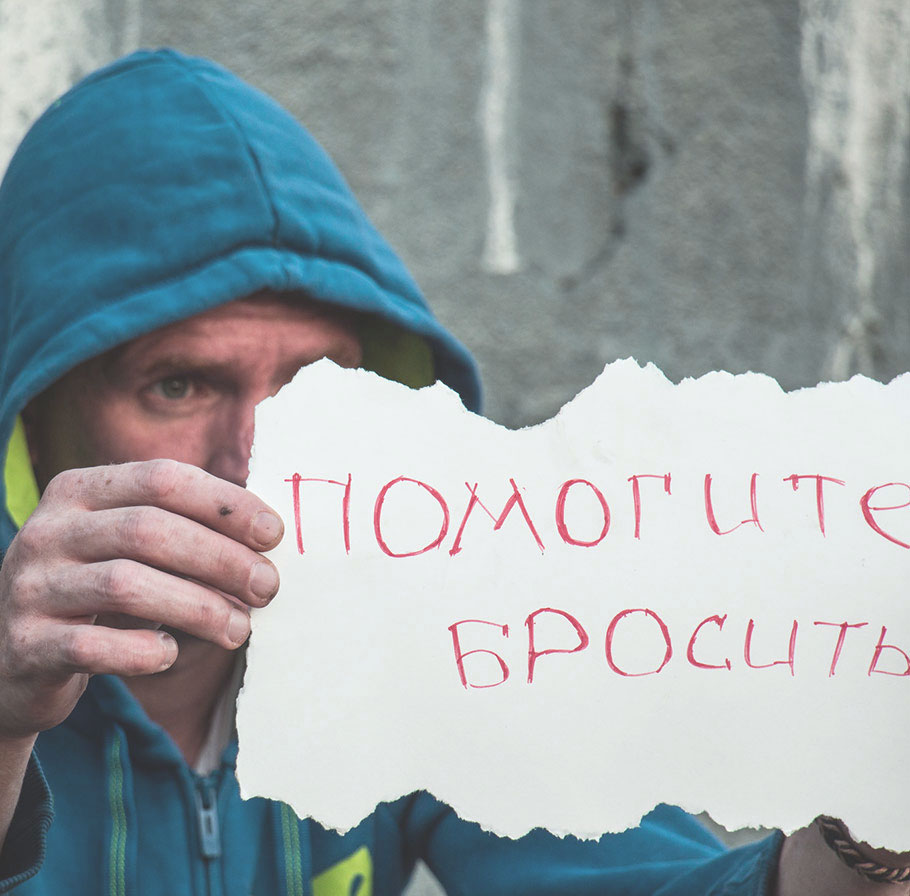 ПОМОГИТЕ
БРОСИТЬ